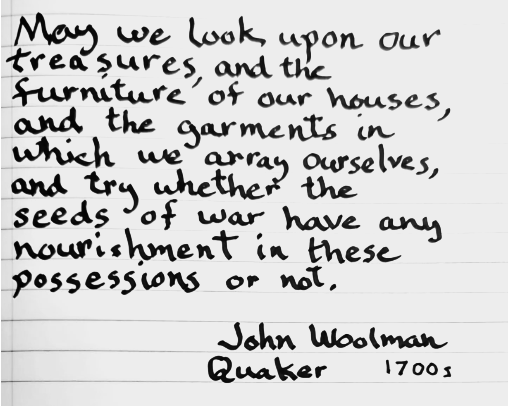 May we look upon our
treasures, and the
furniture of our houses,
and the garments in
which we array ourselves,
and try whether the
seeds of war have any
nourishment in these
possessions or not.
John Woolman
Quaker 1700s